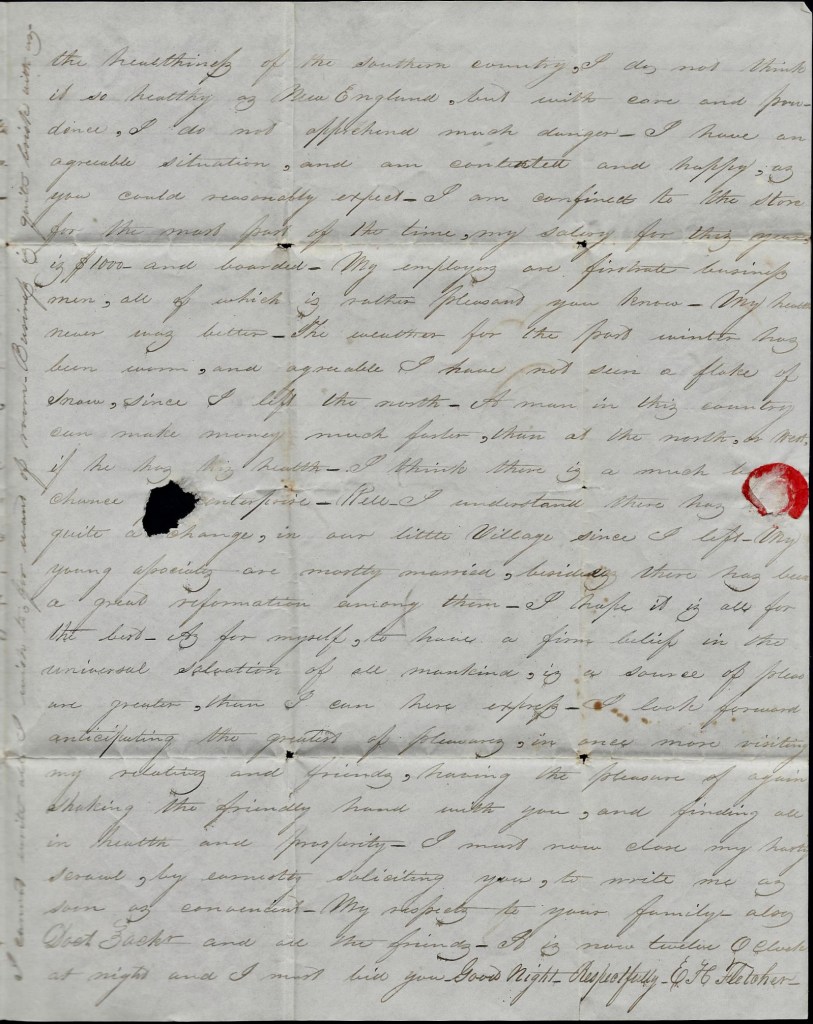 the healthiness of the southern country, I do not think
it so healthy as New England, but with care and pru-
dince, I do not apprehend much danger - I have an
agreeable situation, and am contented and happy, as
you could reasonably expect - I am confined to the store
for the most part of the time, my salary for this year
is $1000 - and boarded - My employers are firstrate business
men, all of which is rather pleasant you know - My health
never was better - The weather for the past winter has
been warm, and agreeable I have not seen a flake of
Snow, since I left the north - A man in this country
can make money much faster, than at the north, or West,
if he has his health - I think there is a much
chance enterprise - Well - I understand there has
quite a change, in our little Village since I left - My
young associates are mostly married, besides there has been
a great reformation among them - I hope it is all for
the best - As for myself, to have a firm belief in the
universal salvation of all mankind, is a source of pleas
ure greater, than I can here express - I look forward
anticipating the greatest of pleasures, in once more visiting
my relatives and friends, having the pleasure of again
shaking the friendly hand with you, and finding all
in health and prosperity - I must now close my hasty
scrawl, by earnestly soliciting you, to write me as
soon as convenient - My respects to your family - also
Doct and all the friends - It is now twelve O Clock
at night and I must bid you Good Night - Respectfully - E H Fletcher -
I cannot write all I wish to for want of room - Business is quite brisk with us -